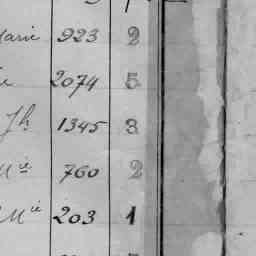 Marie 923 2
2074 5
Jh 1345 3
Mie 760 2
Mie 203 1